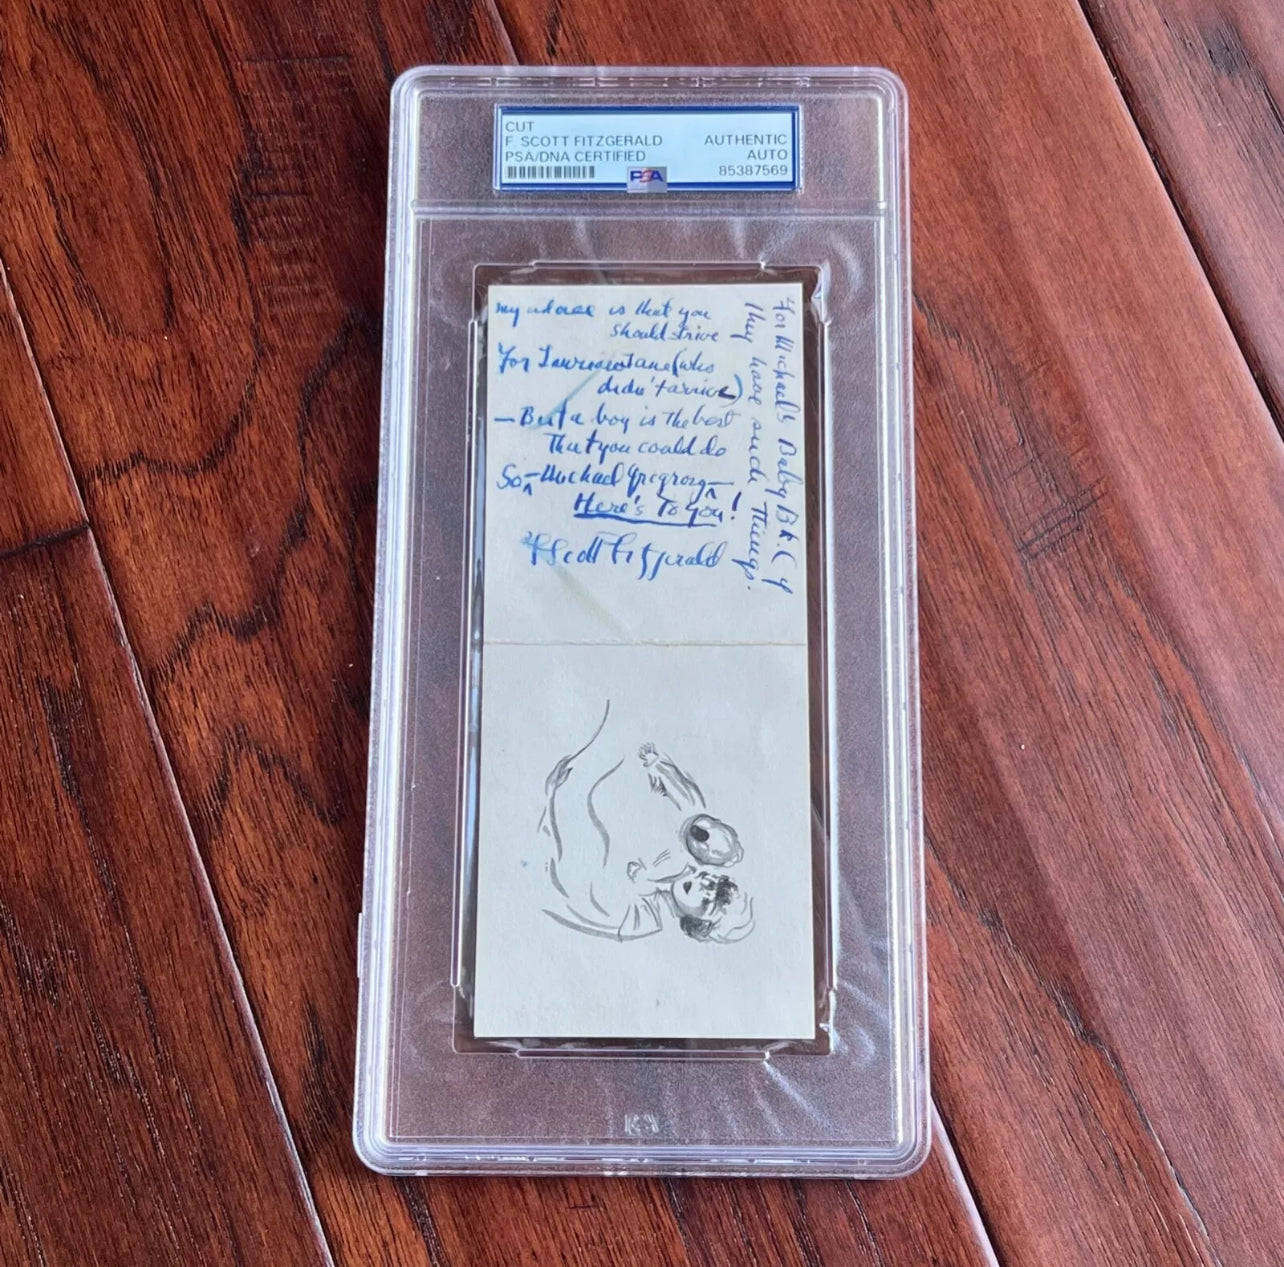 CUT
F. SCOTT FITZGERALD
PSA/DNA CERTIFIED
AUTHENTIC
AUTO
85387569
PSA
my advice is that you
should strive
For Laurie Jane (who
didn't arrive)
— But a boy is the best
That you could do
So — Michael Gregrory —
Here's To You!
F Scott Fitzgerald
For Michael's Baby Bk.
They have such Things.